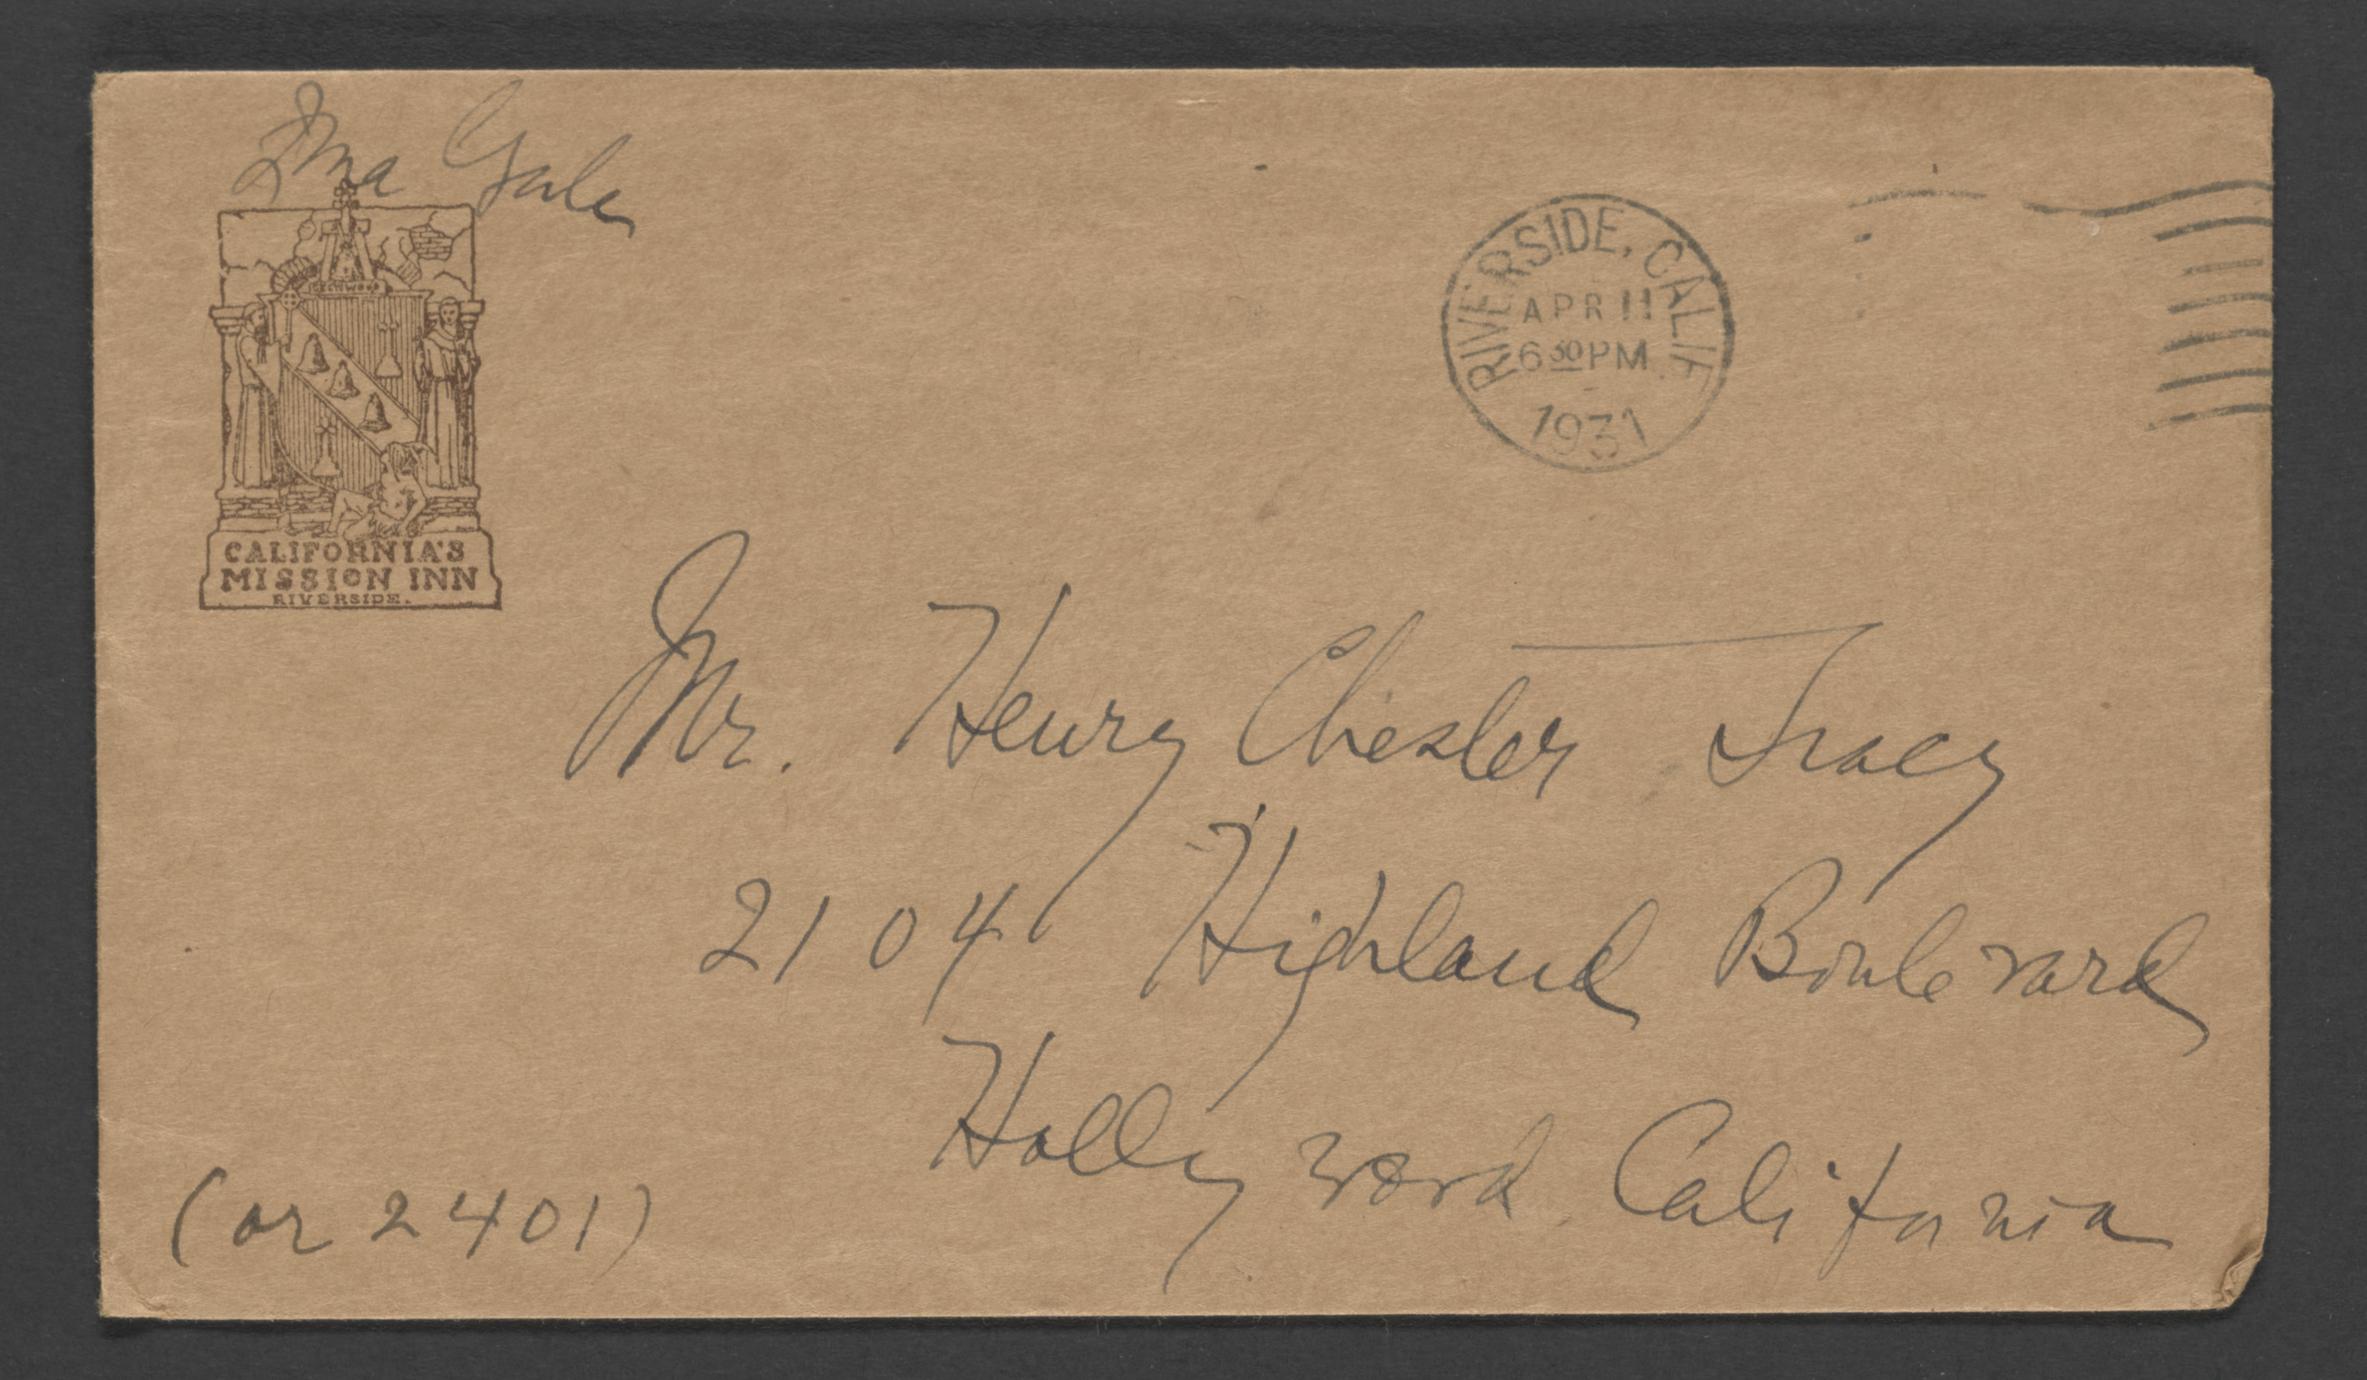 Zona Gale
CALIFORNIA'S
MISSION INN
RIVERSIDE.
RIVERSIDE, CALIF
APR 11
6 30 PM
1931
Mr. Henry Chester Tracy
2104 Highland Boulevard
Hollywood California
(or 2401)